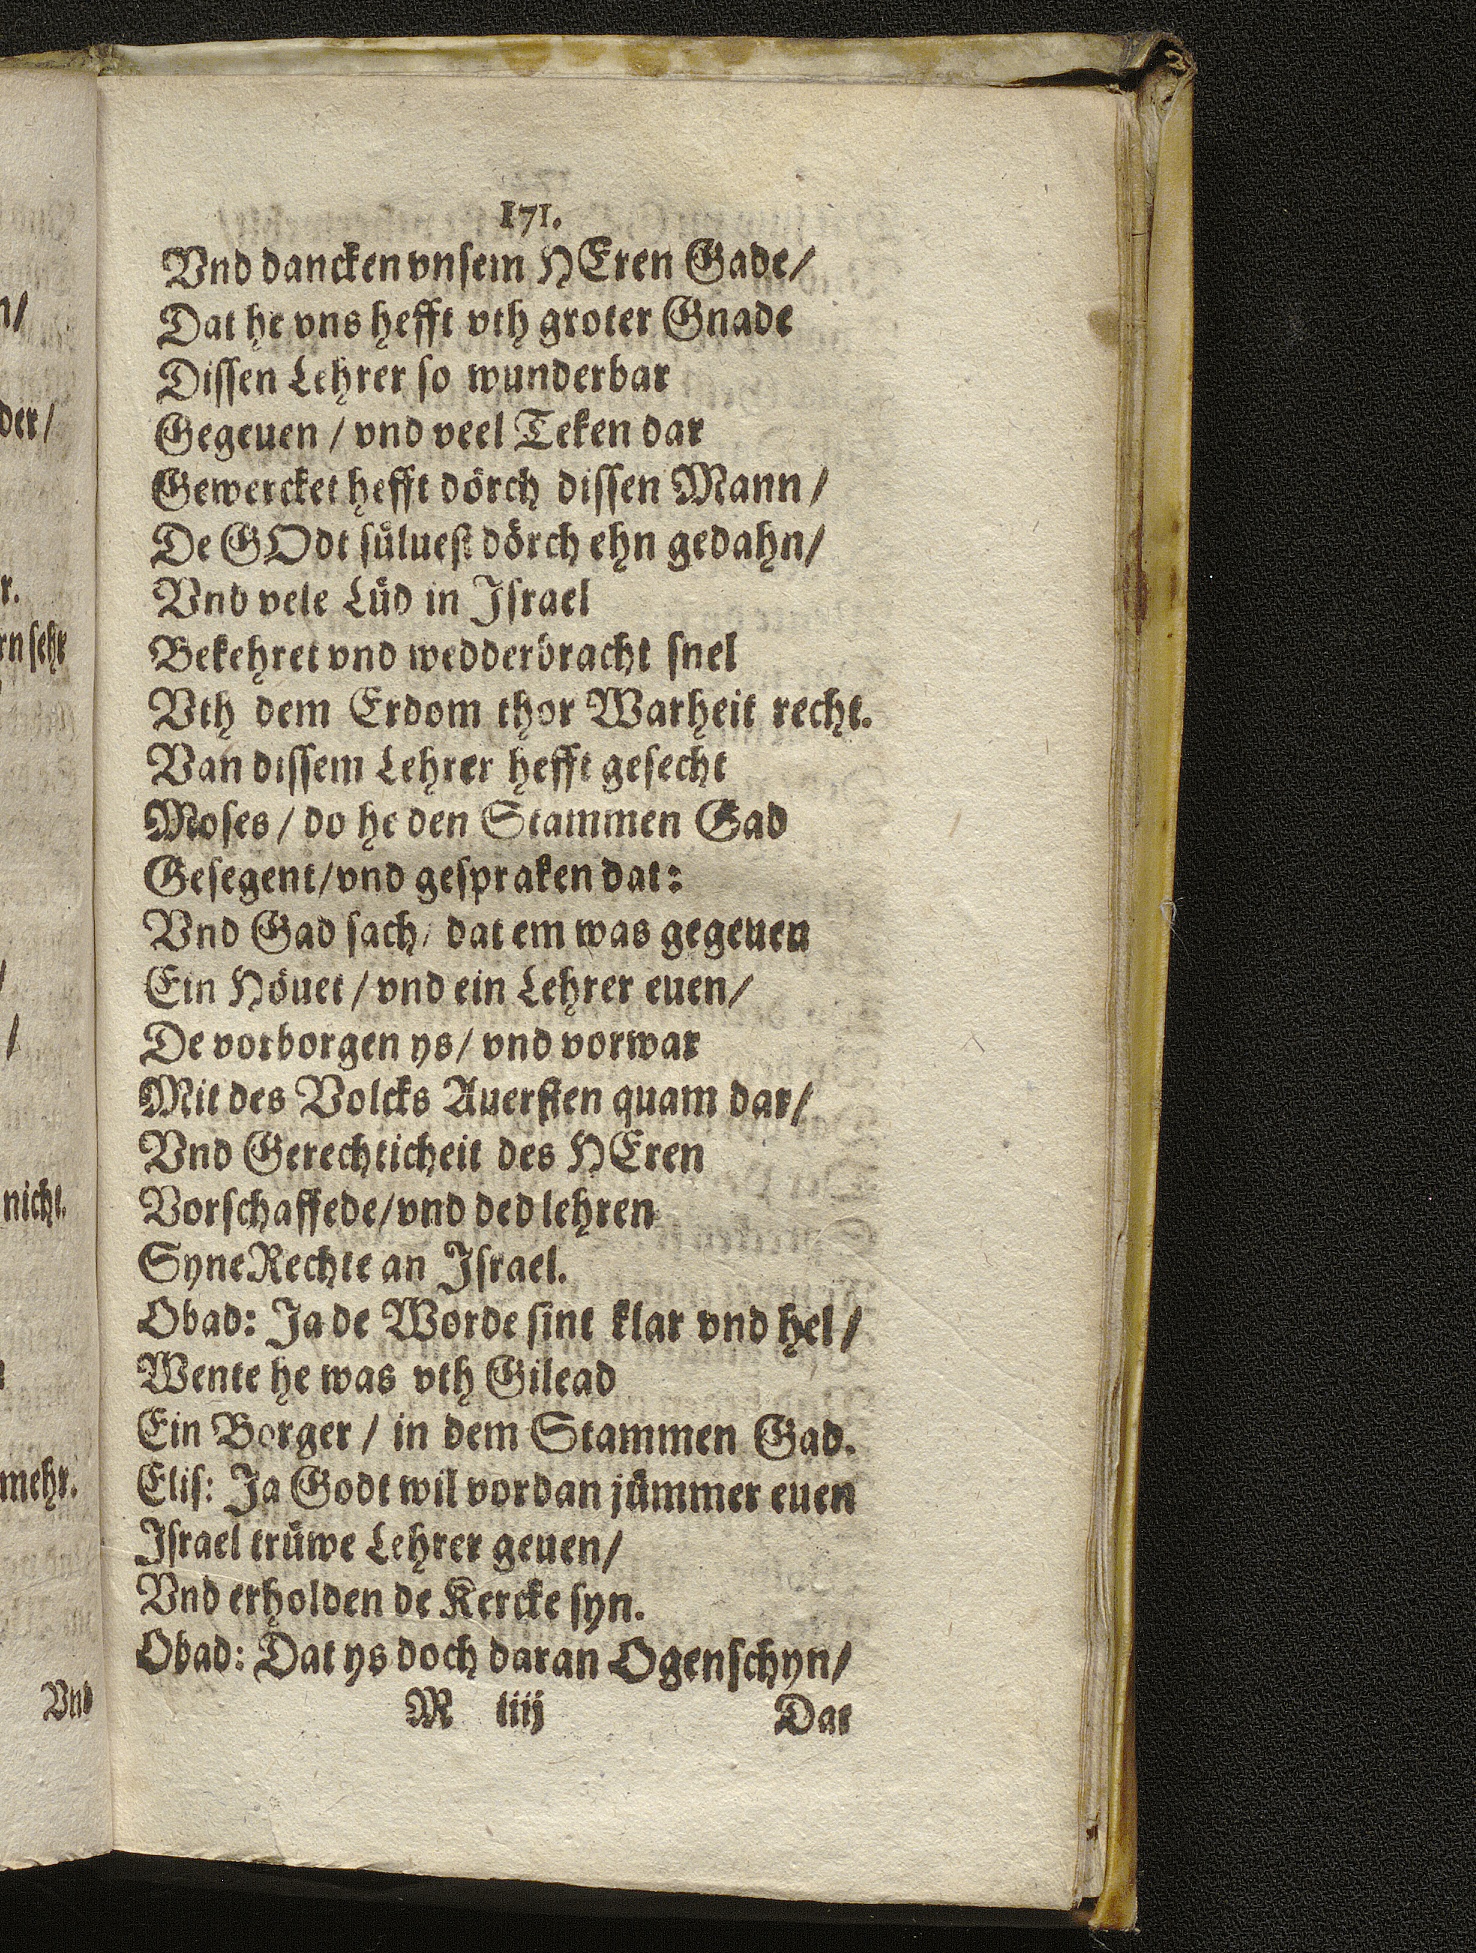 171.
Vnd dancken vnsem HEren Gade/
Dat he vns hefft vth groter Gnade
Dissen Lehrer so wunderbar
Gegeuen / vnd veel Teken dar
Gewercket hefft dörch dissen Mann /
De GOdt süluest dörch ehn gedahn/
Vnd vele Lüd in Israel
Bekehret vnd wedderbracht snel
Vth dem Erdom thor Warheit recht.
Van dissem Lehrer hefft gesecht
Moses / do he den Stammen Gad
Gesegent/vnd gespraken dat:
Vnd Gad sach/ dat em was gegeuen
Ein Höuet / vnd ein Lehrer euen/
De vorborgen ys/ vnd vorwar
Mit des Volcks Auersten quam dar/
Vnd Gerechticheit des HEren
Vorschaffede/vnd ded lehren
Syne Rechte an Israel.
Obad: Ja de Worde sint klar vnd hel /
Wente he was vth Gilead
Ein Borger / in dem Stammen Gad.
Elis: Ja Godt wil vordan jümmer euen
Israel trüwe Lehrer geuen/
Vnd erholden de Kercke syn.
Obad: Dat ys doch daran Ogenschyn/
M iiij Dat
n/
der/
r.
rn sehr
/
/
nicht.
mehr.
Vnd